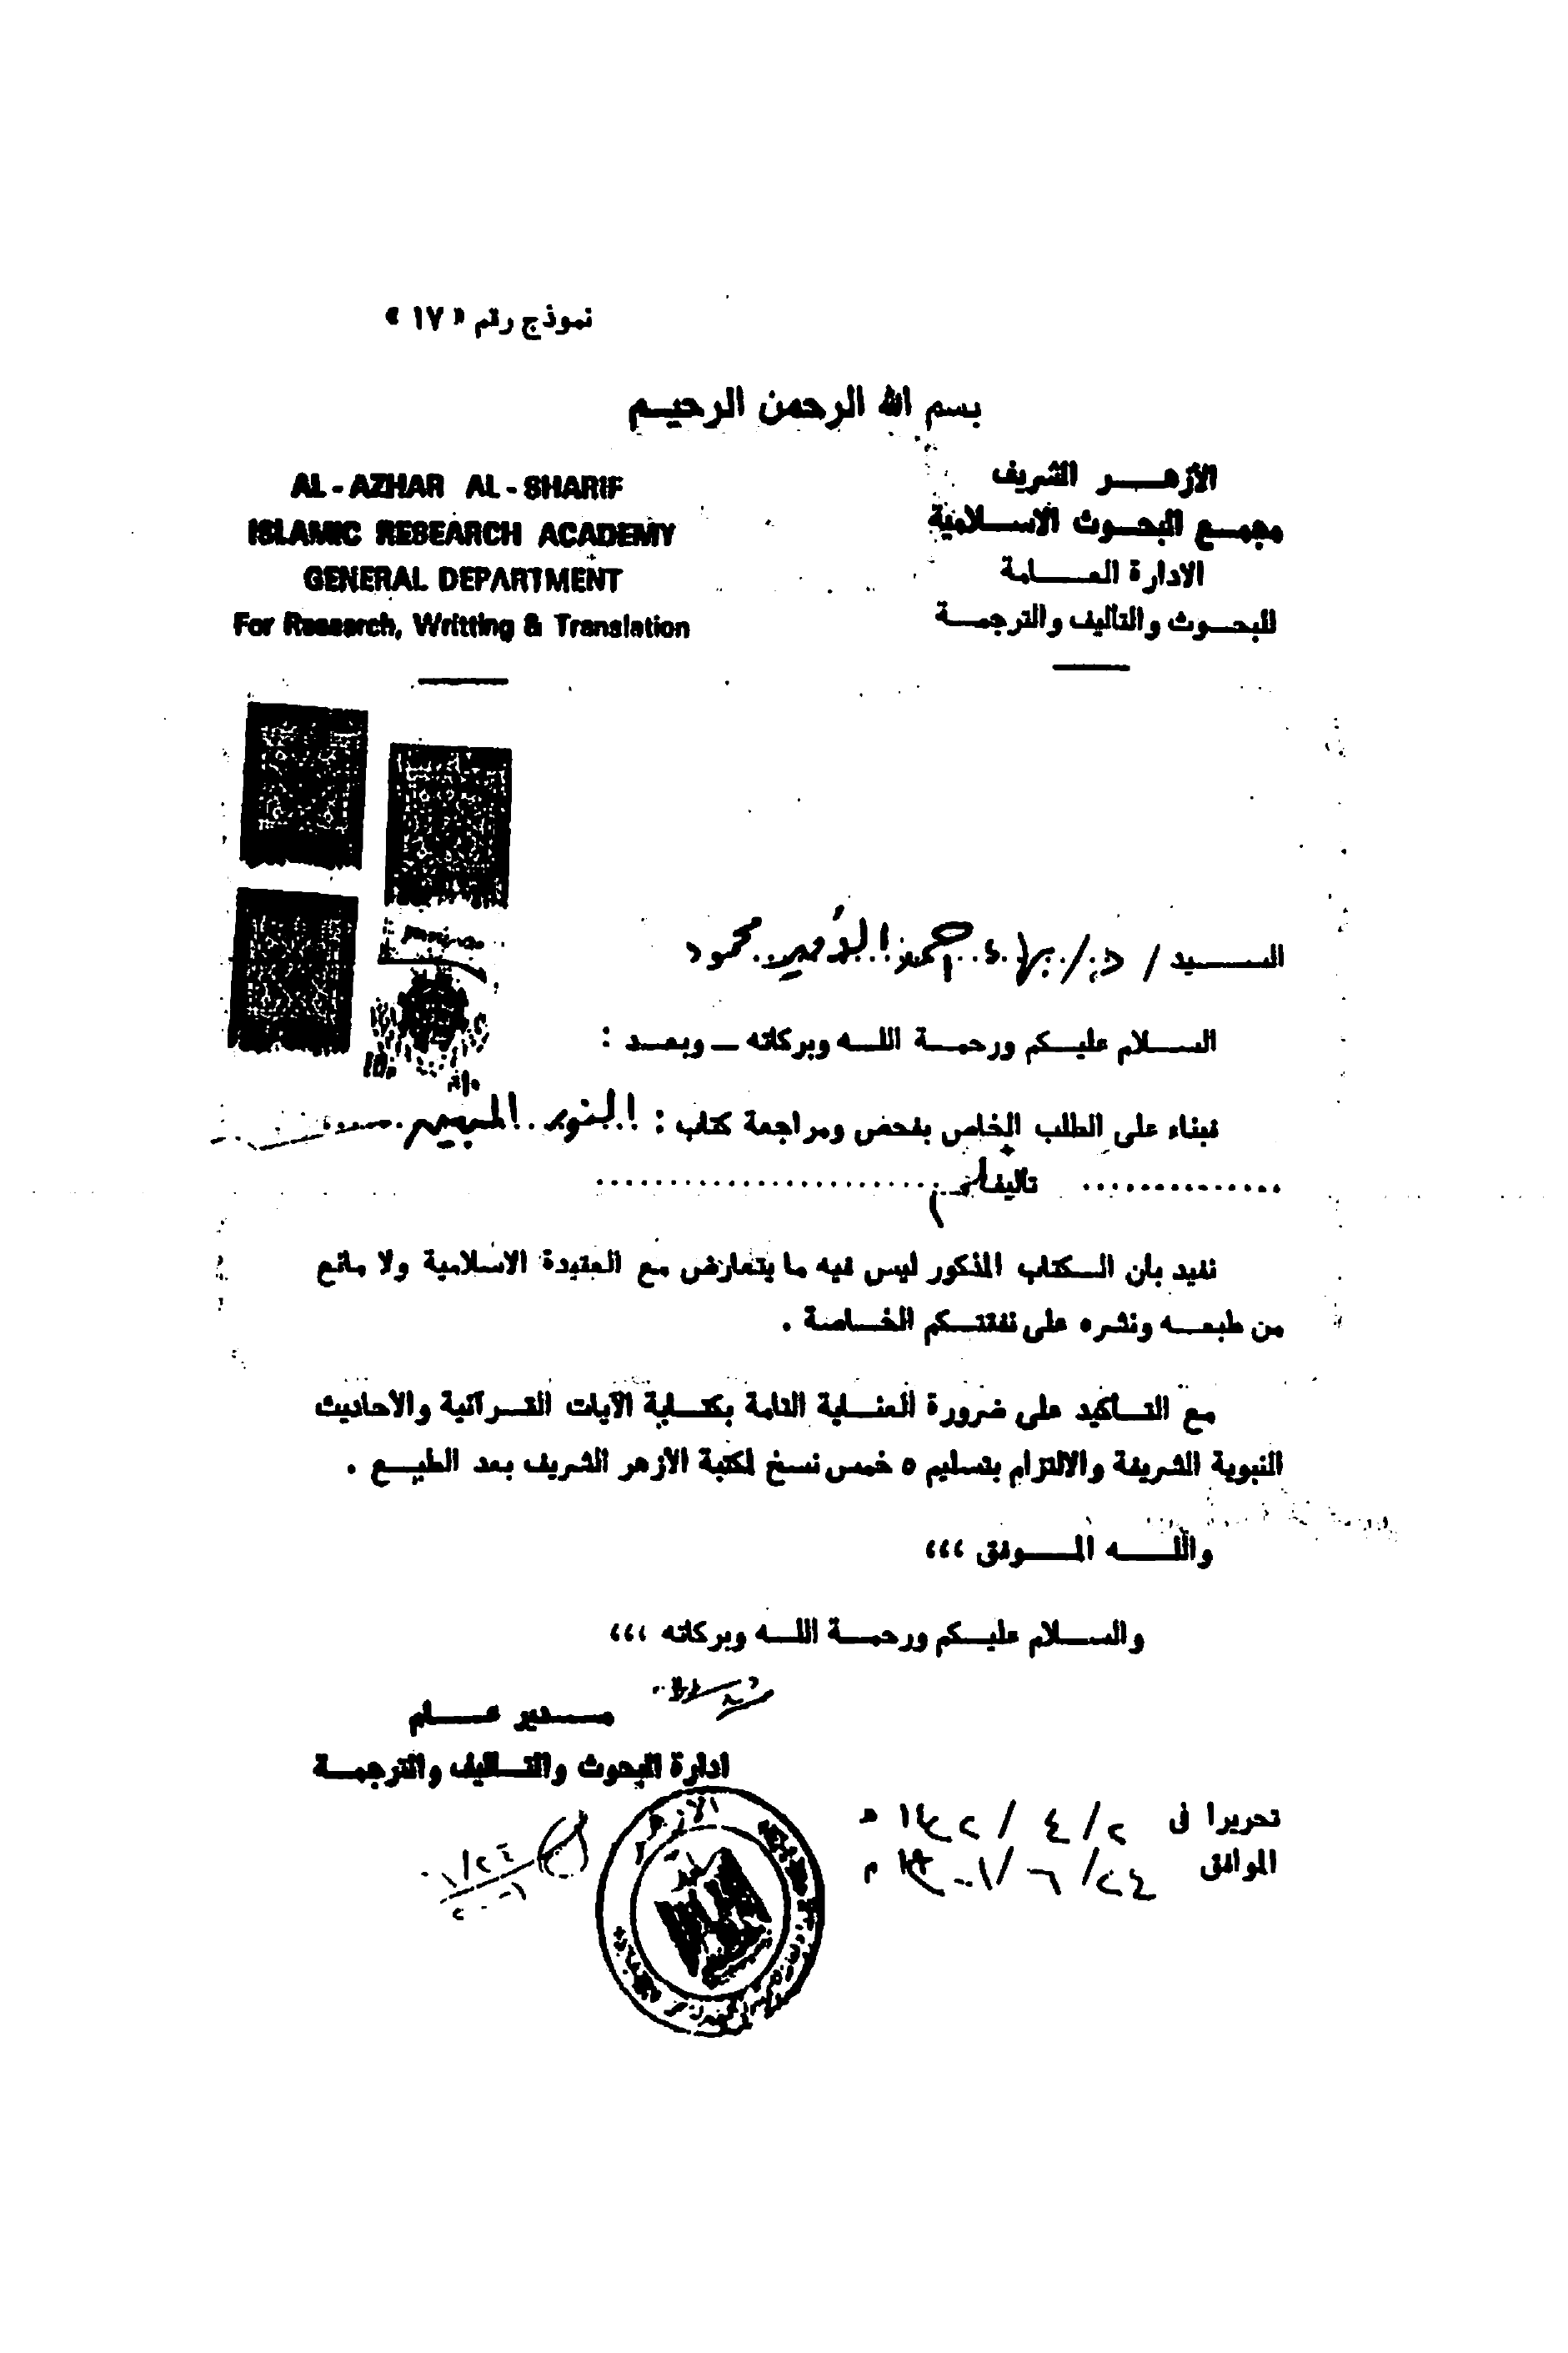 نموذج رقم « ١٧ »
بسم الله الرحمن الرحيم
الأزهر الشريف
مجمع البحوث الاسلامية
الادارة العامة
للبحوث والتأليف والترجمة
AL - AZHAR AL - SHARIF
ISLAMIC RESEARCH ACADEMY
GENERAL DEPARTMENT
For Research, Writting & Translation
السيد / د. / بهاء الأمير محمود
السلام عليكم ورحمة الله وبركاته — وبعد :
فبناء على الطلب الخاص بفحص ومراجعة كتاب : النور المبين
تأليف
نفيد بأن الكتاب المذكور ليس فيه ما يتعارض مع العقيدة الاسلامية ولا مانع
من طبعه ونشره على نفقتكم الخاصة .
مع التأكيد على ضرورة العناية التامة بكتابة الآيات القرآنية والأحاديث
النبوية الشريفة والالتزام بتسليم ٥ خمس نسخ لمكتبة الأزهر الشريف بعد الطبع .
والله الموفق ،،،
والسلام عليكم ورحمة الله وبركاته ،،،
مدير عام
ادارة البحوث والتأليف والترجمة
تحريرا فى ٢ / ٤ / ١٤٢٢ هـ
الموافق ٢٤ / ٦ / ٢٠٠١ م
الازهر